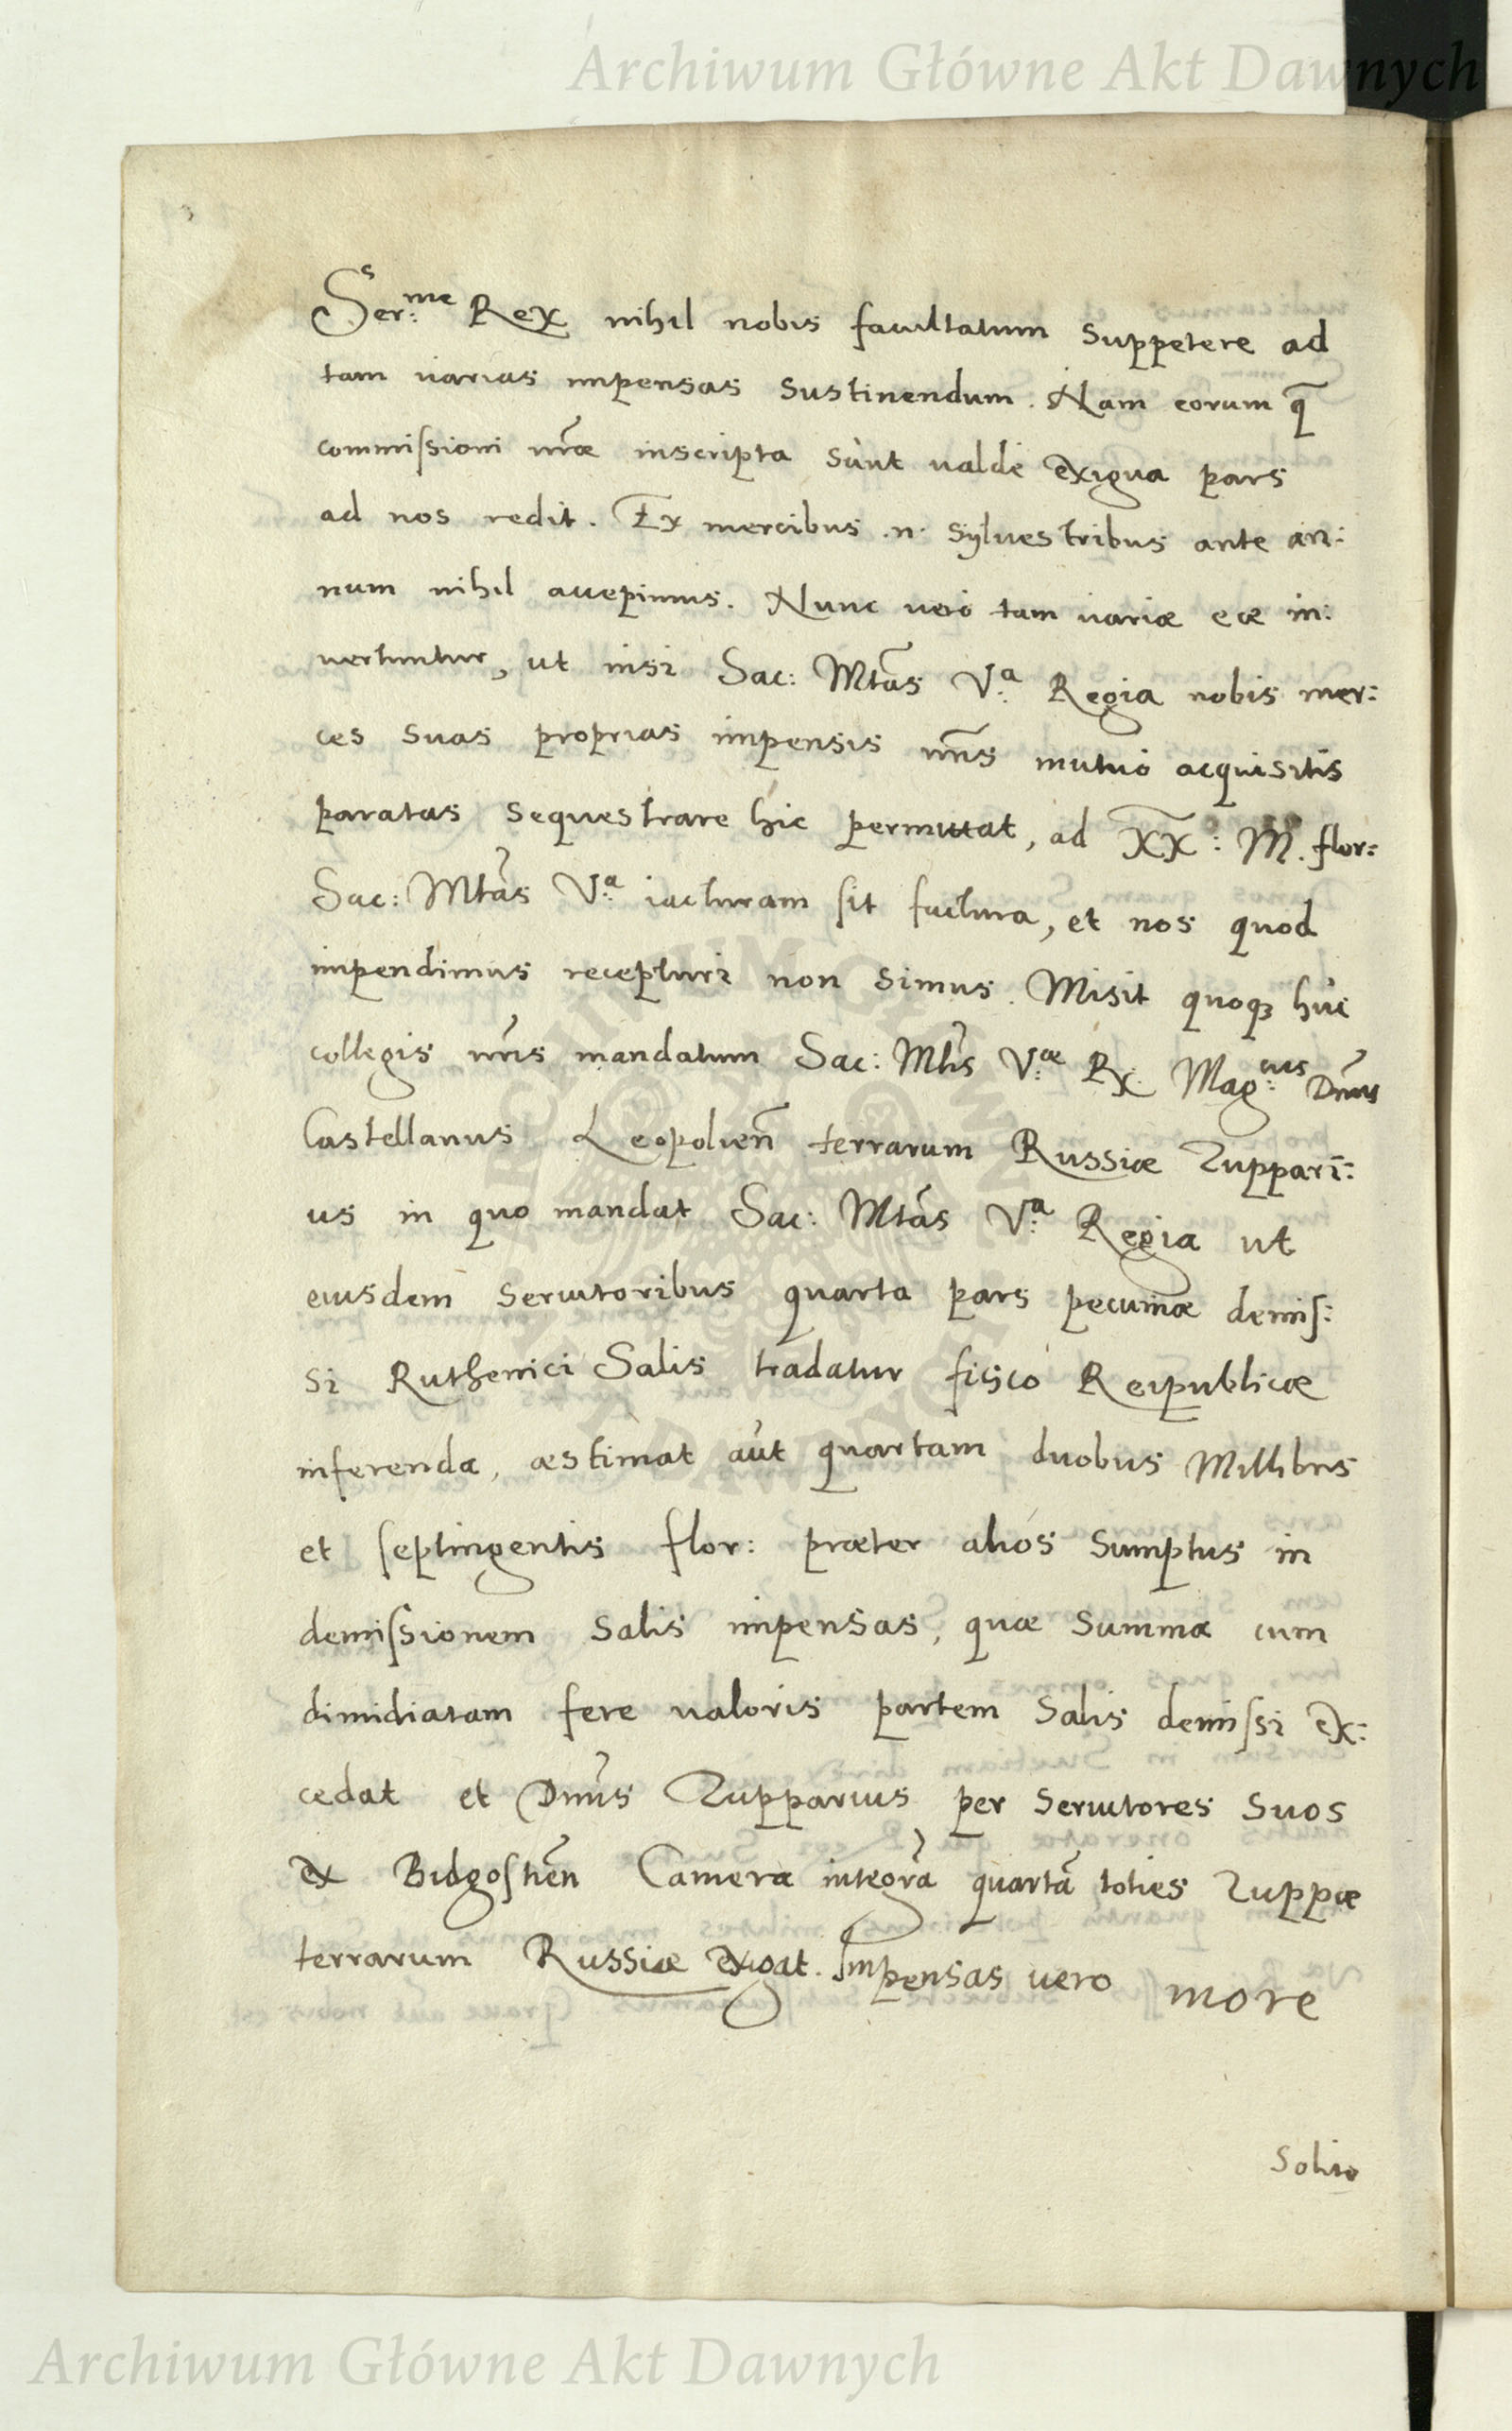 Archiwum Główne Akt Dawnych
Ser:me Rex nihil nobis facultatum suppetere ad
tam varias impensas sustinendum. Nam eorum q̃
commissioni nr̃æ inscripta sunt valde exigua pars
ad nos redit. Ex mercibus .n. sylvestribus ante an:
num nihil accepimus. Nunc vero tam variæ eæ in:
vertuntur, ut nisi Sac: Mtãs V:a Regia nobis mer:
ces suas proprias impensis nr̃is mutuo acquisitis
paratas sequestrare hic permittat, ad XX: M. flor:
Sac: Mtãs V:a iacturam sit factura, et nos quod
impendimus recepturi non simus. Misit quoq3 huc
collegis nr̃is mandatum Sac: Mtis V:æ Rx. Mag:cus Dnus
Castellanus Leopolien̄ terrarum Russiæ Zuppari:
us in quo mandat Sac: Mtãs V:a Regia ut
eiusdem servitoribus quarta pars pecuniæ demis:
si Ruthenici Salis tradatur fisco Reipublicæ
inferenda, æstimat aut̃ quartam duobus Millibus
et septingentis flor: præter alios sumptus in
demissionem salis impensas, quæ summa cum
dimidiatam fere valoris partem salis demissi ex:
cedat et Dnus Zupparius per servitores suos
ex Bidgostien̄ Camera integrã quartã toties Zuppæ
terrarum Russiæ exigat. Impensas vero more
solito
Archiwum Główne Akt Dawnych